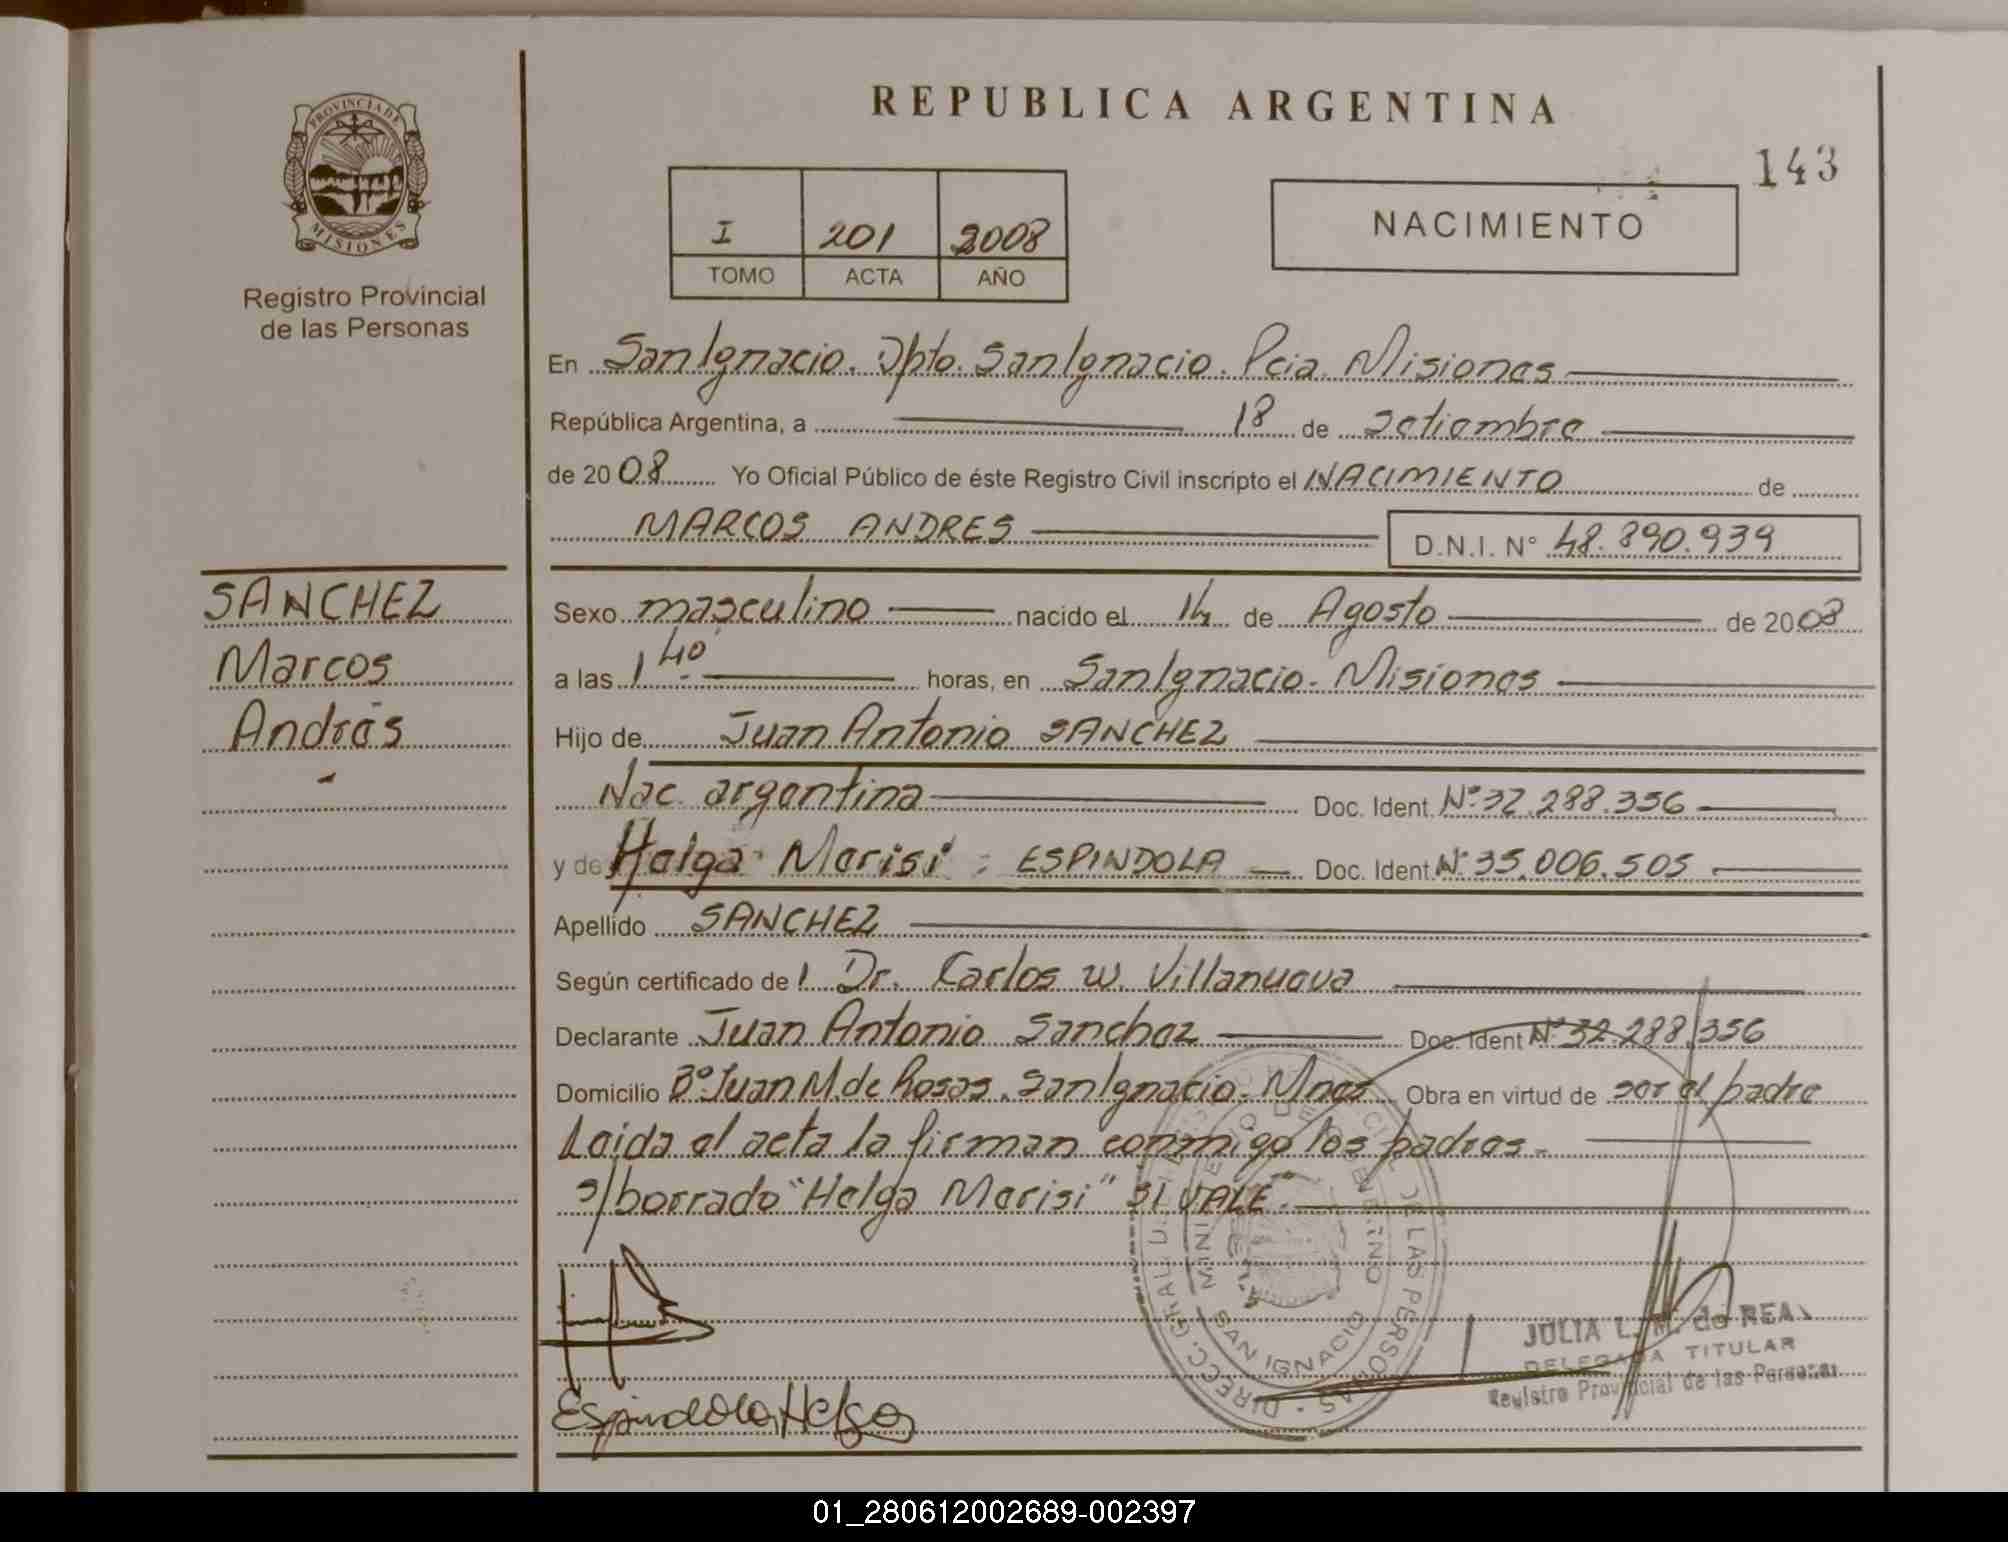 REPUBLICA ARGENTINA
143
PROVINCIA DE
MISIONES
Registro Provincial
de las Personas
I 201 2008
TOMO ACTA AÑO
NACIMIENTO
En San Ignacio. Dpto. San Ignacio. Pcia. Misiones
República Argentina, a 18 de Setiembre
de 2008 Yo Oficial Público de éste Registro Civil inscripto el NACIMIENTO de
MARCOS ANDRES D.N.I. N° 48.390.939
SANCHEZ
Marcos
Andrés
Sexo masculino nacido el 14 de Agosto de 2008
a las 1 40' horas, en San Ignacio. Misiones
Hijo de Juan Antonio SANCHEZ
Nac. argentina Doc. Ident. Nº 32.288.356
y de Helga Marisi ESPINDOLA Doc. Ident. Nº 35.006.505
Apellido SANCHEZ
Según certificado de l Dr. Carlos W. Villanueva
Declarante Juan Antonio Sanchez Doc. Ident Nº 32.288.356
Domicilio Bº Juan M. de Rosas. San Ignacio. Mnes Obra en virtud de ser el padre
Leida el acta la firman conmigo los padres.-
s/borrado "Helga Marisi" SI VALE.-
Espindola Helga
DIRECC. GRAL. DE LAS PERSONAS
SAN IGNACIO
JULIA L. M. de REA
DELEGADA TITULAR
Registro Provincial de las Personas
01_280612002689-002397